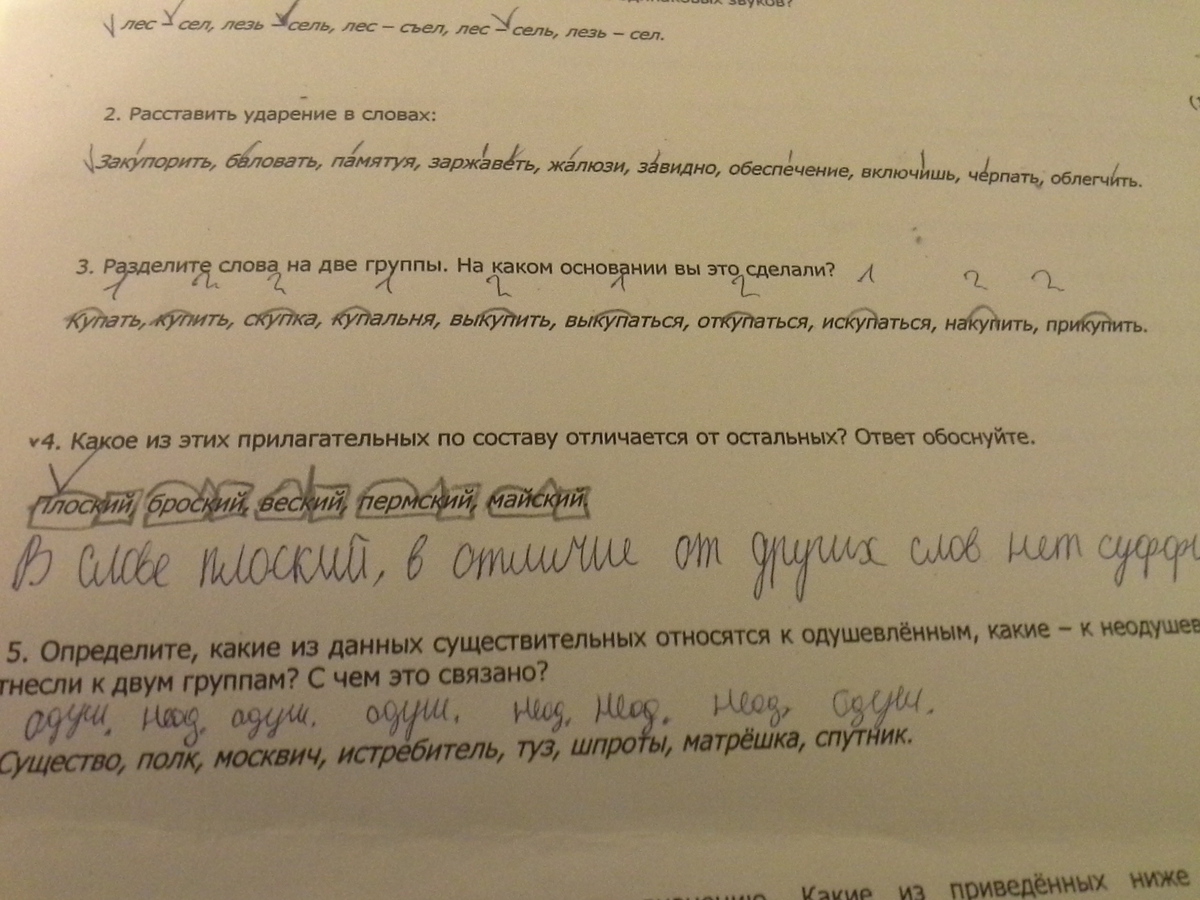 звуков?
лес – сел, лезь – сель, лес – съел, лес – сель, лезь – сел.
2. Расставить ударение в словах:
Закупорить, баловать, памятуя, заржаветь, жалюзи, завидно, обеспечение, включишь, черпать, облегчить.
3. Разделите слова на две группы. На каком основании вы это сделали?
1 2 2 1 2 1 2 1 2 2
Купать, купить, скупка, купальня, выкупить, выкупаться, откупаться, искупаться, накупить, прикупить.
4. Какое из этих прилагательных по составу отличается от остальных? Ответ обоснуйте.
Плоский, броский, веский, пермский, майский.
В слове плоский, в отличие от других слов нет суффи
5. Определите, какие из данных существительных относятся к одушевлённым, какие – к неодушев
тнесли к двум группам? С чем это связано?
одуш. неод. одуш. одуш. неод. неод. неод. одуш.
Существо, полк, москвич, истребитель, туз, шпроты, матрёшка, спутник.
Какие из приведённых ниже